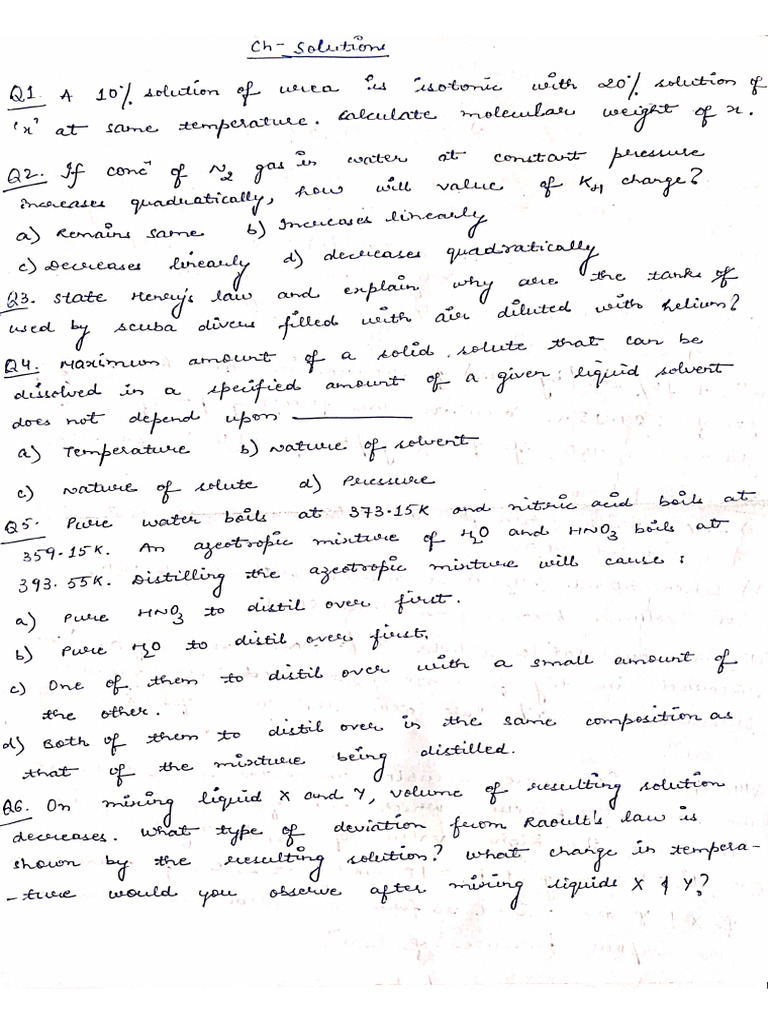 Ch- Solutions
Q1. A 10% solution of urea is isotonic with 20% solution of
'x' at same temperature. Calculate molecular weight of x.
Q2. If concn of N2 gas in water at constant pressure
increases quadratically, how will value of KH change?
a) Remains same b) Increases linearly
c) Decreases linearly d) decreases quadratically
Q3. State Henry's law and explain why are the tanks of
used by scuba divers filled with air diluted with helium?
Q4. Maximum amount of a solid solute that can be
dissolved in a specified amount of a given liquid solvent
does not depend upon ________
a) Temperature b) Nature of solvent
c) Nature of solute d) Pressure
Q5. Pure water boils at 373.15K and nitric acid boils at
359.15K. An azeotropic mixture of H2O and HNO3 boils at
393.55K. Distilling the azeotropic mixture will cause :
a) Pure HNO3 to distil over first.
b) Pure H2O to distil over first.
c) One of them to distil over with a small amount of
the other.
d) Both of them to distil over in the same composition as
that of the mixture being distilled.
Q6. On mixing liquid X and Y, volume of resulting solution
decreases. What type of deviation from Raoult's law is
shown by the resulting solution? What change in tempera-
-ture would you observe after mixing liquids X & Y?